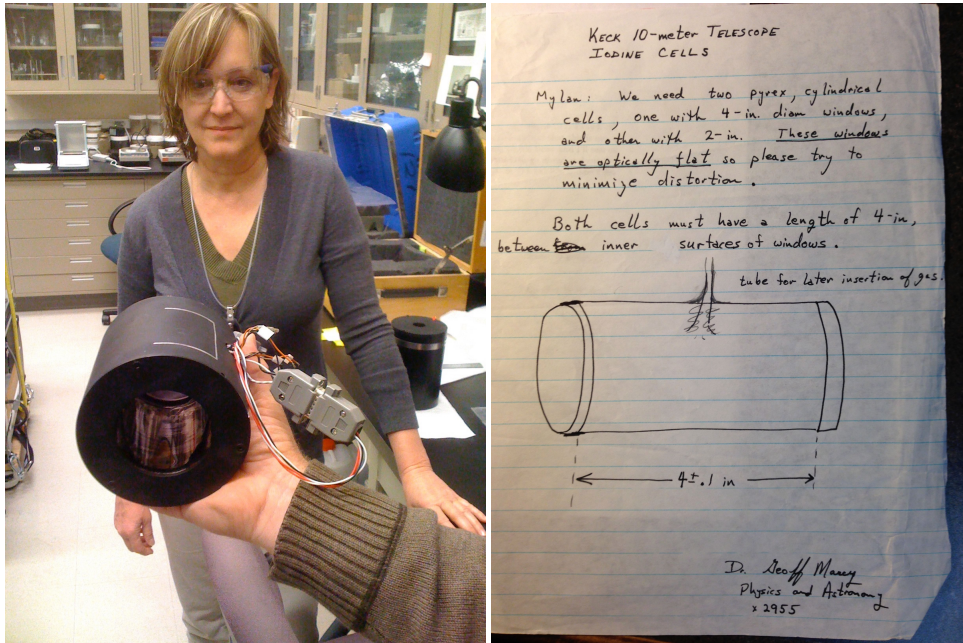 KECK 10-METER TELESCOPE
IODINE CELLS
Mylan: We need two pyrex, cylindrical
cells, one with 4-in. diam windows,
and other with 2-in. These windows
are optically flat so please try to
minimize distortion.
Both cells must have a length of 4-in,
between inner surfaces of windows.
tube for later insertion of gas.
4 ± .1 in
Dr. Geoff Marcy
Physics and Astronomy
x 2955